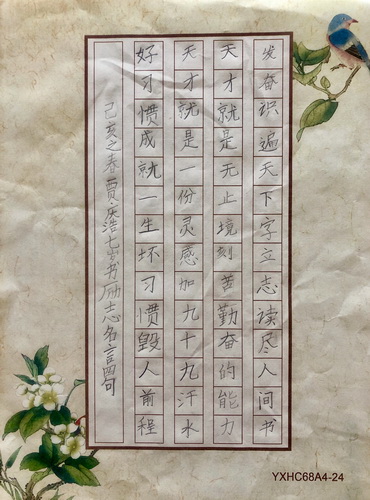 发奋识遍天下字立志读尽人间书
天才就是无止境刻苦勤奋的能力
天才就是一份灵感加九十九汗水
好习惯成就一生坏习惯毁人前程
己亥之春贾庆浩七岁书励志名言四句
YXHC68A4-24